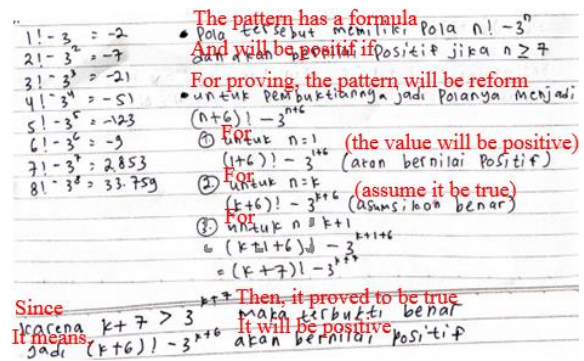 1! - 3 = -2
2! - 3² = -7
3! - 3³ = -21
4! - 3⁴ = -51
5! - 3⁵ = -123
6! - 3⁶ = -9
7! - 3⁷ = 2.853
8! - 3⁸ = 33.759
The pattern has a formula
• Pola tersebut memiliki Pola n! - 3ⁿ
And will be positif if
dan akan bernilai Positif jika n ≥ 7
For proving, the pattern will be reform
• untuk Pembuktiannya jadi Polanya menjadi
(n+6)! - 3ⁿ⁺⁶
For
① untuk n=1 (the value will be positive)
(1+6)! - 3¹⁺⁶ (akan bernilai Positif)
For
② untuk n=k (assume it be true)
(k+6)! - 3ᵏ⁺⁶ (asumsikan benar)
For
③. untuk n = k+1
= (k+1+6)! - 3ᵏ⁺¹⁺⁶
= (k+7)! - 3ᵏ⁺⁷
Since Then, it proved to be true
karena k+7 > 3ᵏ⁺⁷ maka terbukti benar
It means, It will be positive
Jadi (k+6)! - 3ᵏ⁺⁶ akan bernilai positif